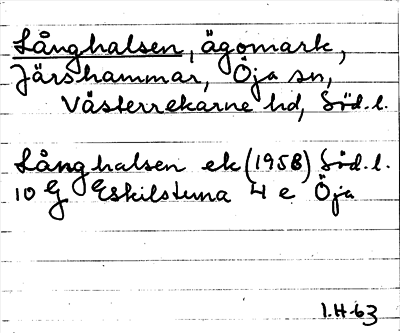 Långhalsen, ägomark,
Järshammar, Öja sn,
Västerrekarne hd, Söd. l.
Långhalsen ek (1958) Söd. l.
10 G Eskilstuna 4 e Öja
I.H-63